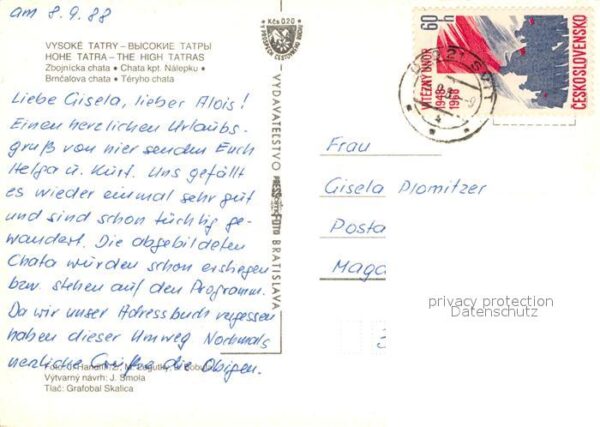 am 8.9.88
VYSOKÉ TATRY – ВЫСОКИЕ ТАТРЫ
HOHE TATRA – THE HIGH TATRAS
Zbojnícka chata • Chata kpt. Nálepku •
Brnčalova chata • Téryho chata
Liebe Gisela, lieber Alois!
Einen herzlichen Urlaubs-
gruß von hier senden Euch
Helga u. Kurt. Uns gefällt
es wieder einmal sehr gut
und sind schon tüchtig ge-
wandert. Die abgebildeten
Chata würden schon erstiegen
bzw. stehen auf den Programm.
Da wir unser Adressbuch vergessen
haben dieser Umweg Nochmals
herzliche Grüße die Obigen.
Výtvarný návrh: J. Šmola
Tlač: Grafobal Skalica
Kčs 0,20
VYDAVATEĽSTVO PRESSFOTO BRATISLAVA
60 h
VÍTĚZNÝ ÚNOR
1948 1988
ČESKOSLOVENSKO
Frau
Gisela Plomitzer
Posta
Maga
privacy protection
Datenschutz